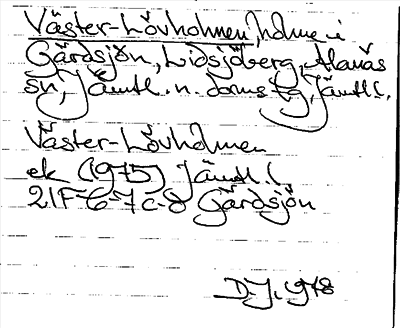 Väster-Lövholmen, holme i
Gärdsjön, Lidsjöberg, Alanäs
sn, Jämtl. n. doms tg, Jämtl l.
Väster-Lövholmen
ek (1975) Jämtl l
21F-6-7c-d Gärdsjön
DJ, 1978